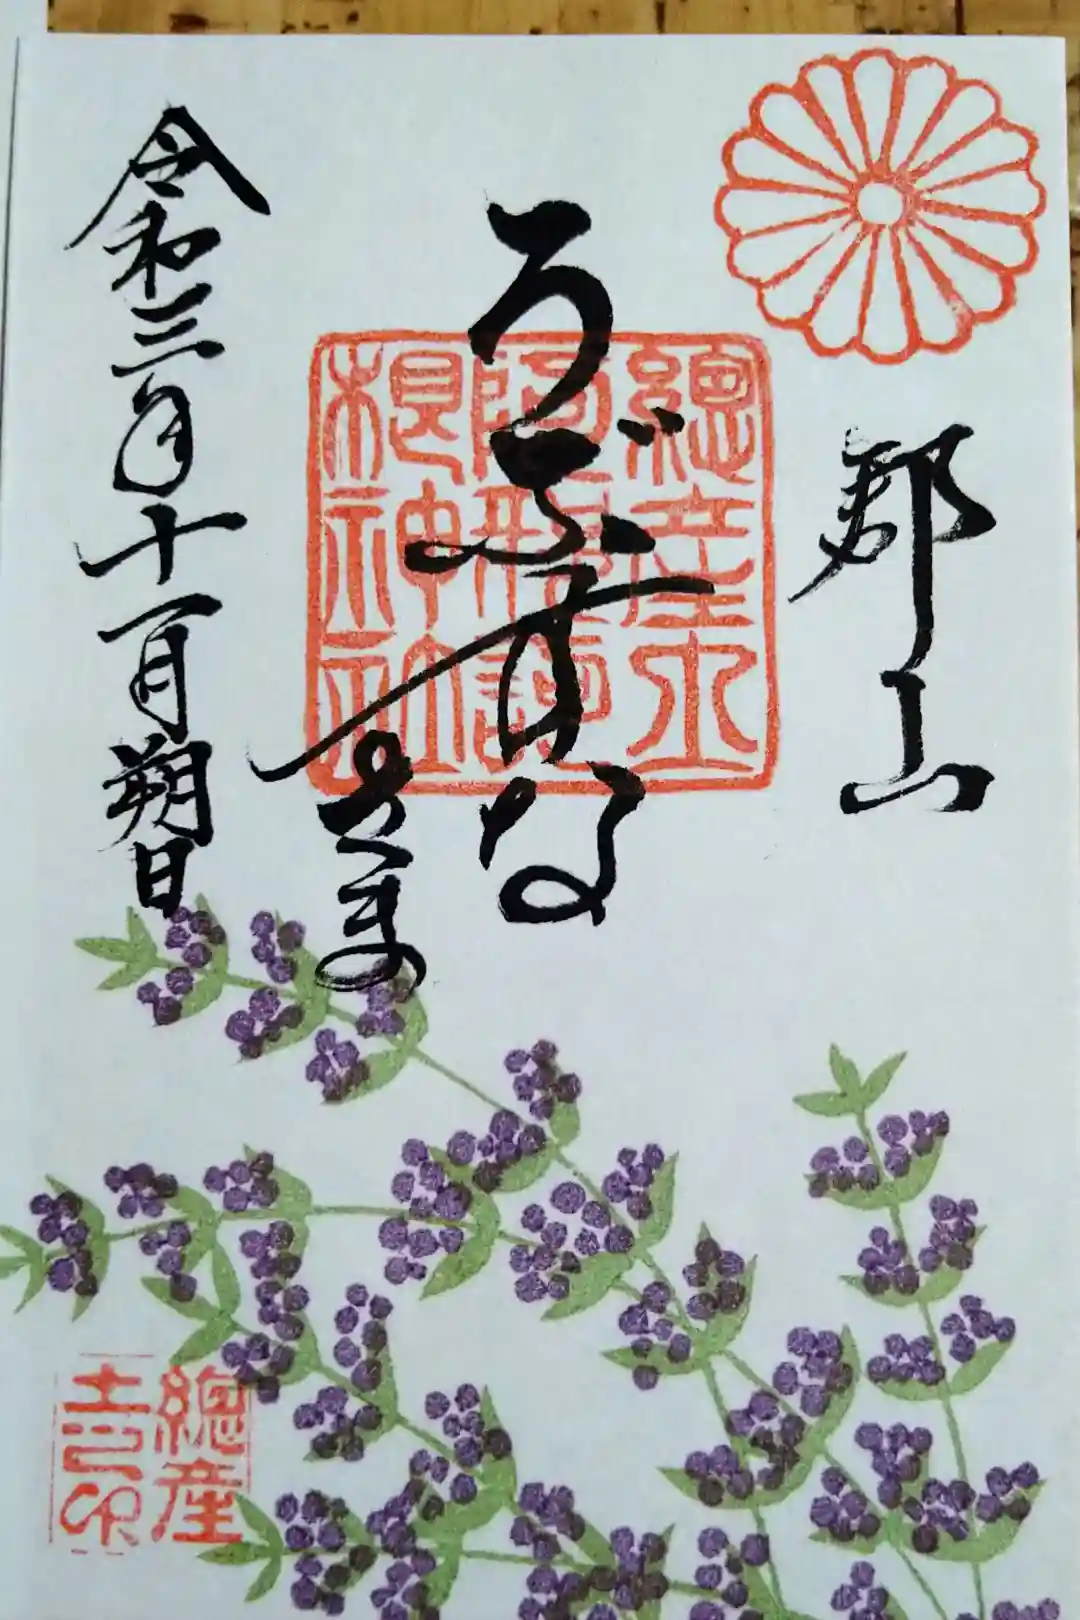 郡山
うぶすな
さま
總産土
阿邪訶
根神社
令和三年十一月朔日
總産
土之印